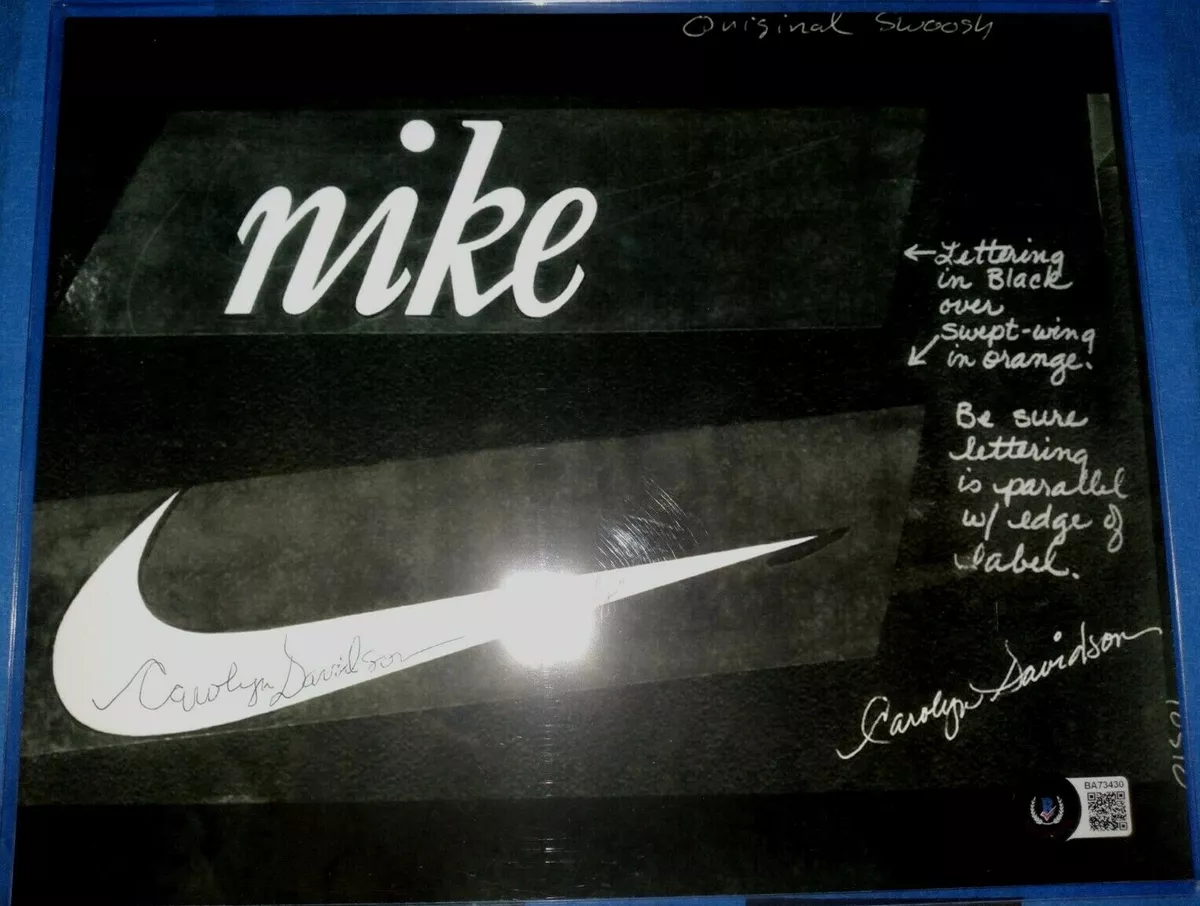 Original Swoosh
nike
←Lettering
in Black
over
swept-wing
↙ in orange.
Be sure
lettering
is parallel
w/ edge of
label.
Carolyn Davidson
Carolyn Davidson
BA73430